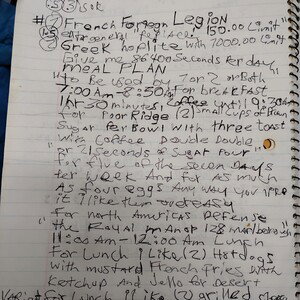 French Foreign Legion
150.00 Limit
Greek hoplite with 7000.00 Limit
Give me 86400 seconds Per day
meAL PLAN
To Be used by 1 or 2 or Both
7:00 Am - 8:50 for breakfast
1 hr 30 minutes Coffee until 9:30 Am
for Poor Ridge (2) Small cups of
Sugar Per Bowl with three toast
With Coffee Double Double
or 2 Seconds
for five of the seven days
Per week And for As much
As four eggs Any way you like
it I like them overeasy
For north Americas Defense
the Royal manor 128
11:00 Am - 12:00 Am Lunch
For Lunch I Like (2) Hotdogs
with mustard French fries With
Ketchup And Jello for Desert
for Lunch I Like (2) grilled